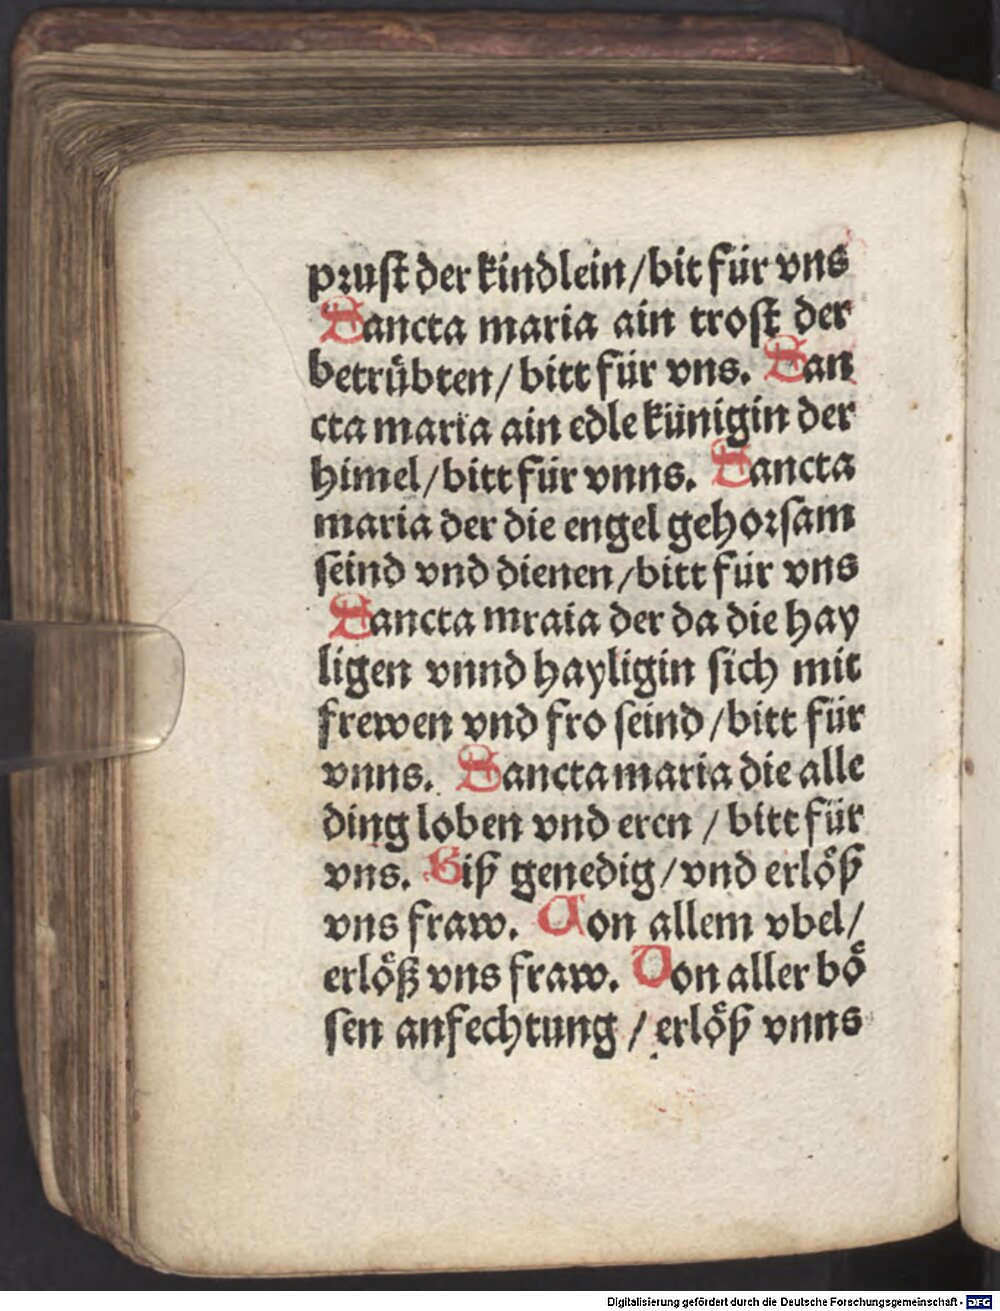 pꝛuſt der kindlein/bit für vns
Sancta maria ain troſt der
betrübten/ bitt für vns. San
cta maria ain edle künigin der
himel/bitt für vnns. Sancta
maria der die engel gehoꝛſam
ſeind vnd dienen/bitt für vns
Sancta mraia der da die hay
ligen vnnd hayligin ſich mit
frewen vnd fro ſeind/bitt für
vnns. Sancta maria die alle
ding loben vnd eren / bitt für
vns. Biß genedig/vnd erlöß
vns fraw. Von allem vbel/
erlöß vns fraw. Von aller bö
ſen anfechtung / erlöß vnns
Digitalisierung gefördert durch die Deutsche Forschungsgemeinschaft - DFG